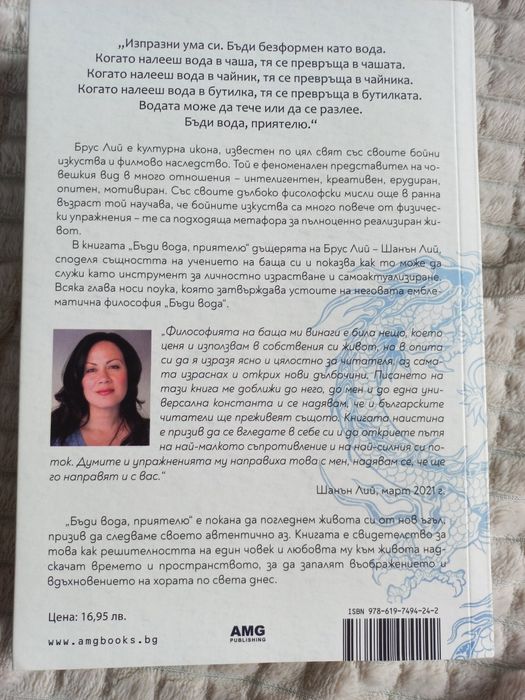 „Изпразни ума си. Бъди безформен като вода.
Когато налееш вода в чаша, тя се превръща в чашата.
Когато налееш вода в чайник, тя се превръща в чайника.
Когато налееш вода в бутилка, тя се превръща в бутилката.
Водата може да тече или да се разлее.
Бъди вода, приятелю.“
Брус Лий е културна икона, известен по цял свят със своите бойни
изкуства и филмово наследство. Той е феноменален представител на чо-
вешкия вид в много отношения – интелигентен, креативен, ерудиран,
опитен, мотивиран. Със своите дълбоко фисолофски мисли още в ранна
възраст той научава, че бойните изкуства са много повече от физичес-
ки упражнения – те са подходяща метафора за пълноценно реализиран жи-
вот.
В книгата „Бъди вода, приятелю“ дъщерята на Брус Лий – Шанън Лий,
споделя същността на учението на баща си и показва как то може да
служи като инструмент за личностно израстване и самоактуализиране.
Всяка глава носи поука, която затвърждава устоите на неговата ембле-
матична философия „Бъди вода“.
„Философията на баща ми винаги е била нещо, което
ценя и използвам в собствения си живот, но в опита
си да я изразя ясно и цялостно за читателя, аз сама-
та израснах и открих нови дълбочини. Писането на
тази книга ме доближи до него, до мен и до една уни-
версална константа и се надявам, че и българските
читатели ще преживеят същото. Книгата наистина
е призив да се вгледате в себе си и да откриете пътя
на най-малкото съпротивление и на най-силния си по-
ток. Думите и упражненията му направиха това с мен, надявам се, че ще
го направят и с вас.“
Шанън Лий, март 2021 г.
„Бъди вода, приятелю“ е покана да погледнем живота си от нов ъгъл,
призив да следваме своето автентично аз. Книгата е свидетелство за
това как решителността на един човек и любовта му към живота над-
скачат времето и пространството, за да запалят въображението и
вдъхновението на хората по света днес.
Цена: 16,95 лв.
www.amgbooks.bg
AMG
PUBLISHING
ISBN 978-619-7494-24-2